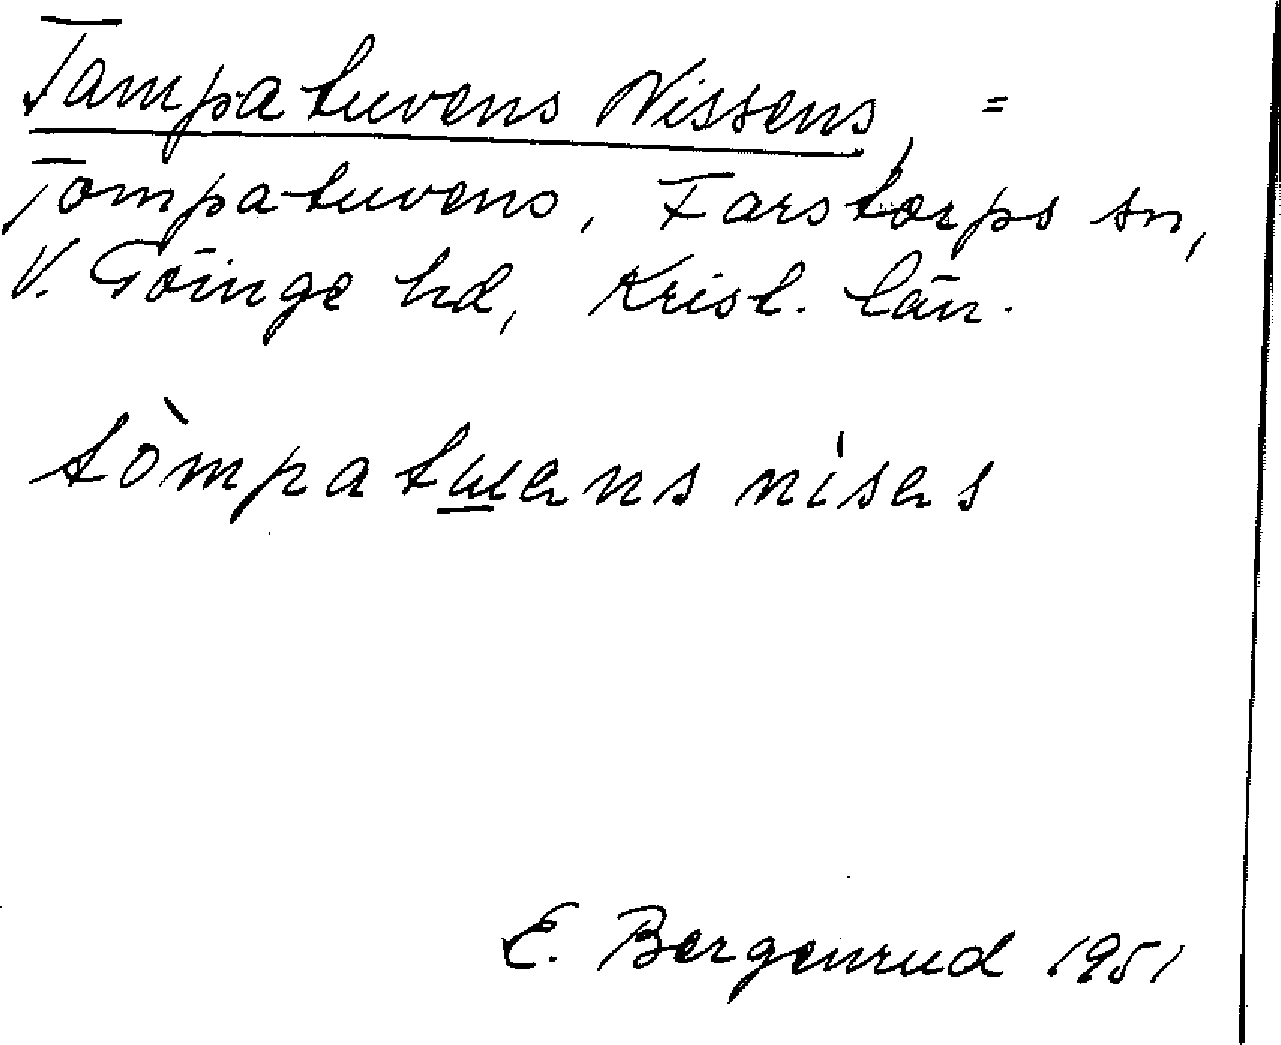 Tampatuvens Nissens, =
Tompatuvens, Farstorps sn,
V. Göinge hd, Krist. län.
tòmpatuens nisens
E. Bergenrud 1951